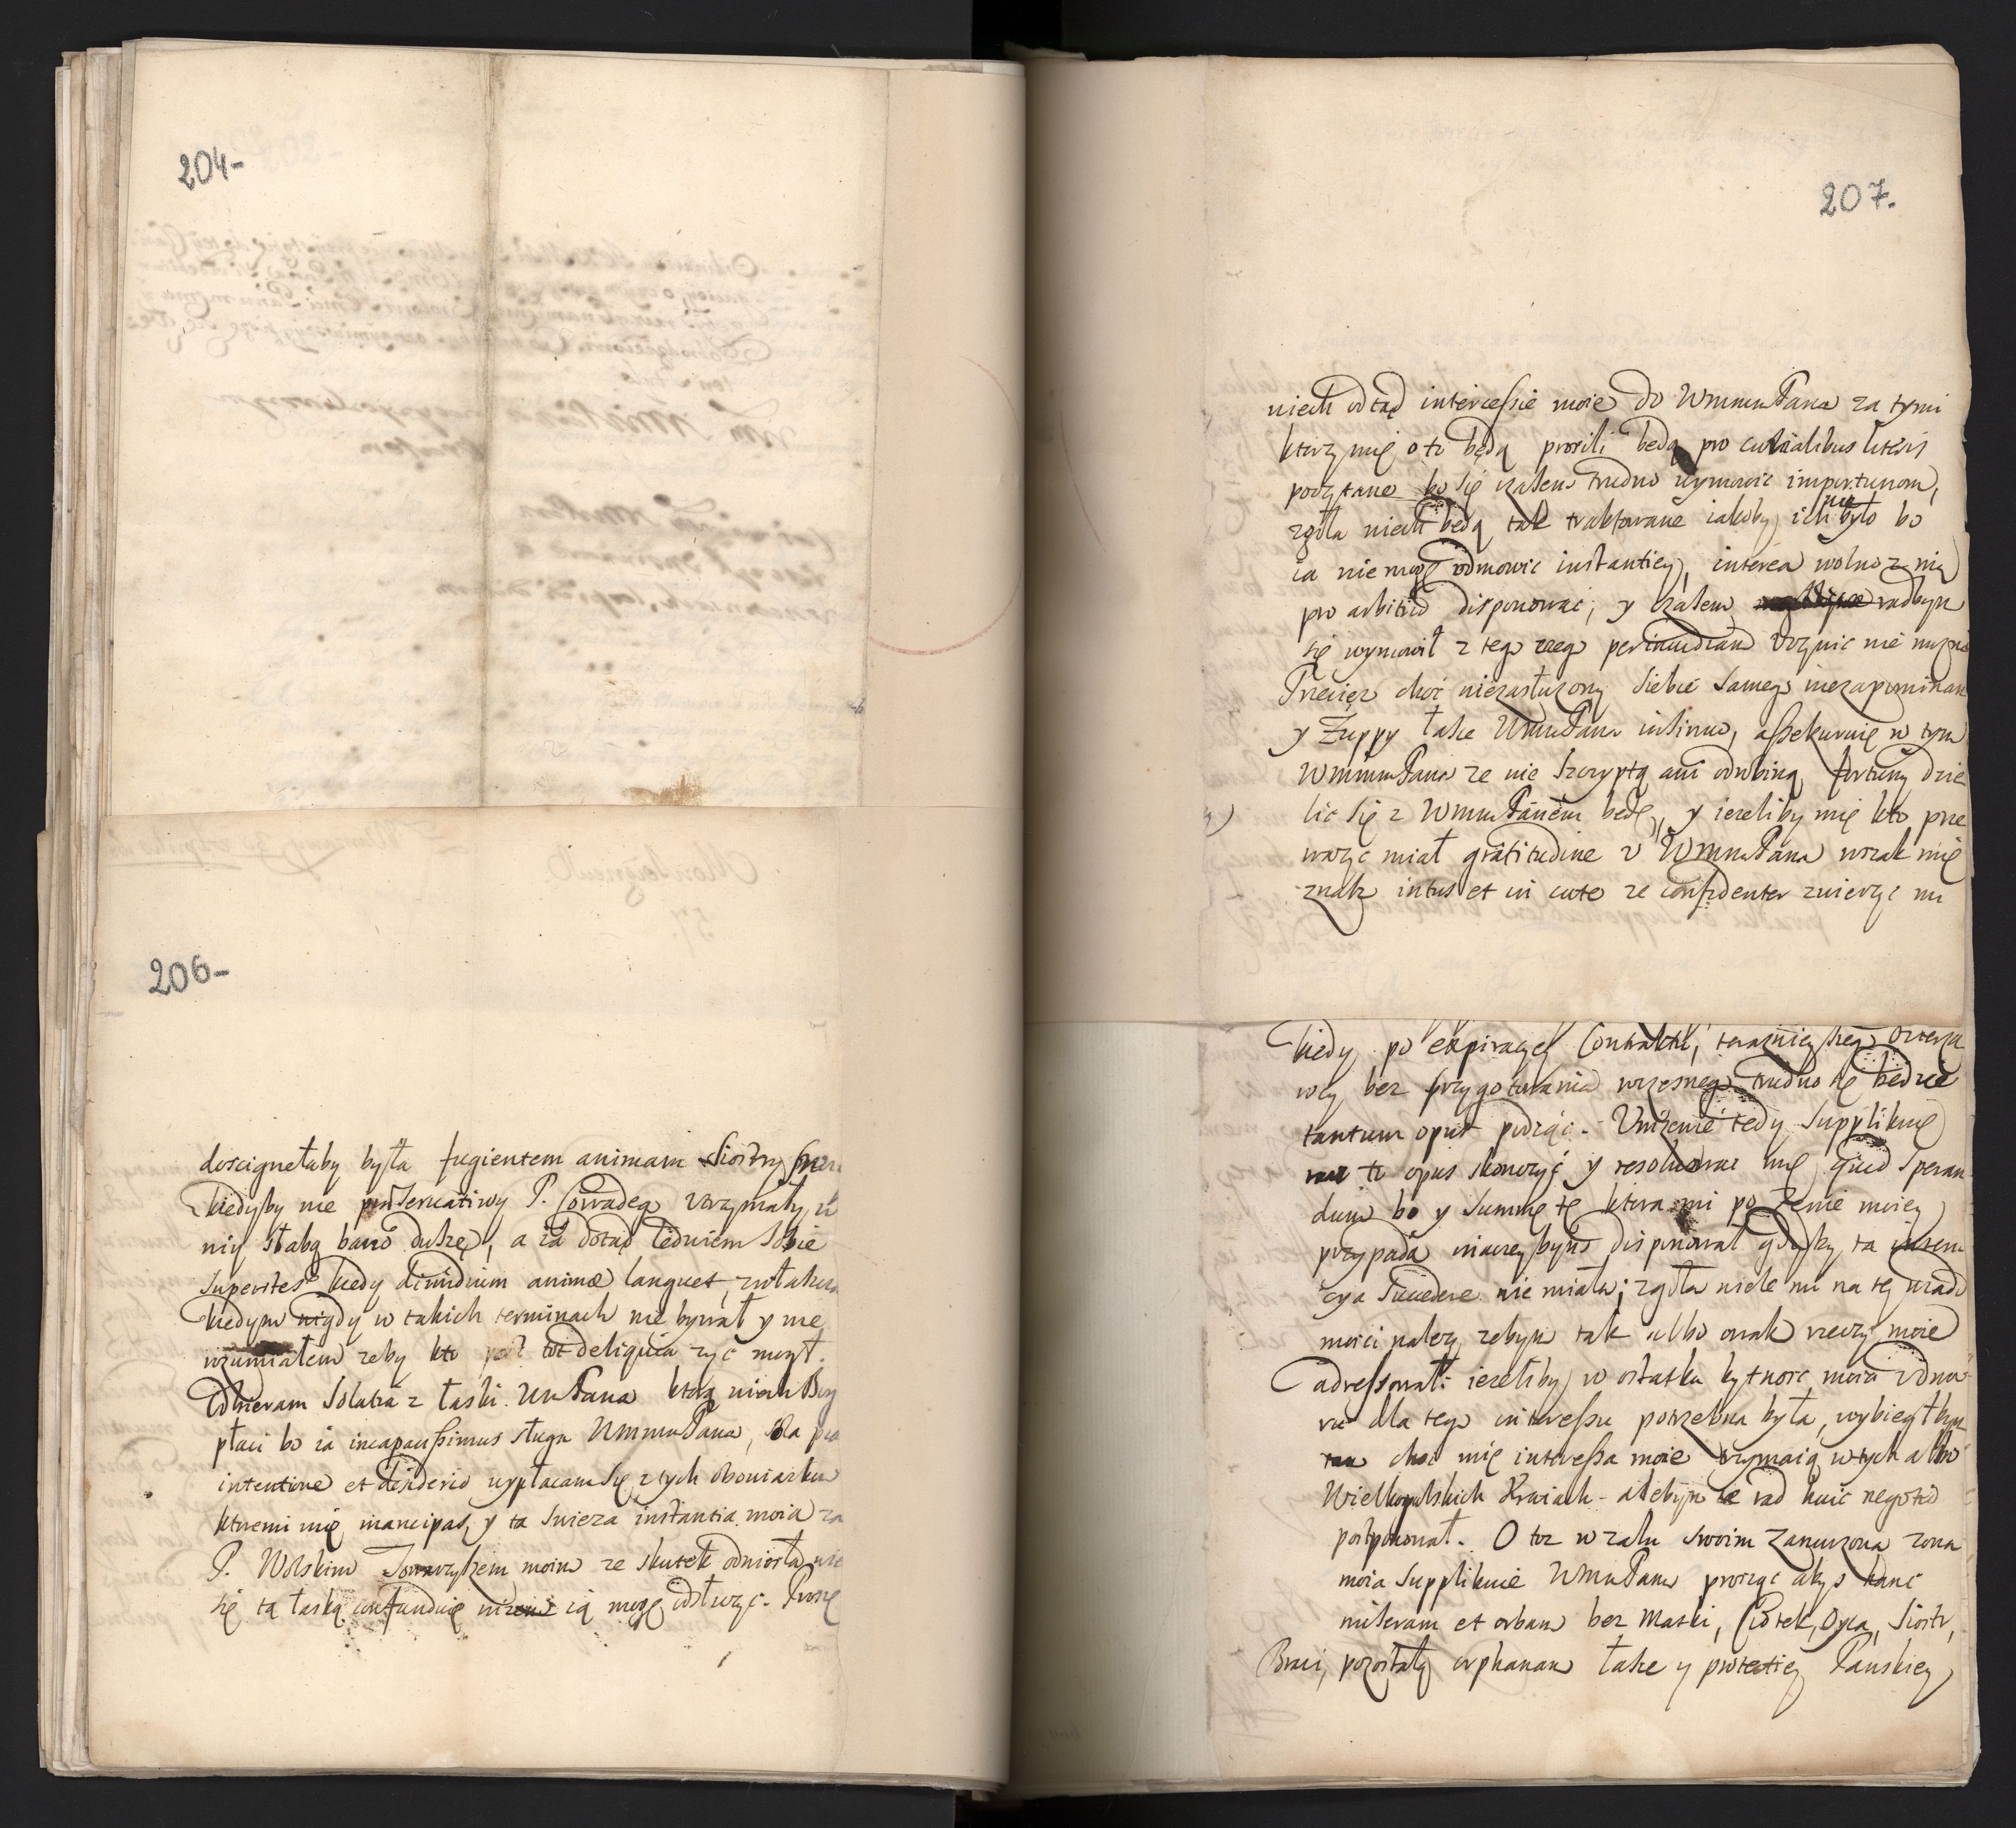 204-
206-
doścignęłaby była fugientem animam Siostry
kiedyby nie praeservativy P. Corradego utrzymały w
niy słabą barzo duszę, a ia dotąd ledwiem sobie
superstes kiedy dimidium animæ languet, zwłaszcza
kiedym nigdy w takich terminach nie bywał y nie
rozumiałem zeby kto post tot deliquia zyc mogł.
Odbieram Solatia z łaski UmPana ktorą niech Bog
płaci bo ia incapacissimus sługa UmmmPana, sola
intentione et desiderio wypłacam się z tych obowiązkow
ktoremi mię mancipasz, y ta swieza instantia moia za
P. Wolskim Towarzyszem moim ze skutek odniosła
się tą łaską confunduię ią mogę odsłuzyc. Proszę
207.
niech odtąd intercessie moie do WmmmPana za tymi
ktorzy mię o to będą prosili będą pro curialibus literis
poczytane bo się czasem trudno wymowic importunom,
zgoła niech będą tak traktowane iakoby ich nie było bo
ia nie mogę odmowic instantiey, interea wolno z nią
pro arbitrio disponowac, y czasem radbym
się wymowił z tego czego per iracundiam uczynic nie mozna
Przeciez choc niezasłuzony siebie samego niezapominam
y Zuppy łasce UmmPana insinuo, assekuruię w tym
WmmmPana ze nie szczyptą ani odrobiną fortuny dzie
lic się z WmmPanem będę, y iezeliby mię kto prze
wazyc miał gratitudine u WmmPana wszak mię
znasz intus et in cute ze confidenter zwierzyc mi
kiedy po expiracyey Contraktu, teraznieyszego Dzierza
wcy bez przygotowania wczesnego trudno się będzie
tantum opus podiąc. Unizenie tedy supplikuię
to opus skonczyc y resolwowac mię quid speran
dum bo y Summę tę ktora mi po Zenie moiey
przypada inaczeybym disponował gdyby ta inten
cya succedere nie miała; zgoła wiele mi na tey wiado
mosci nalezy zebym tak albo owak rzeczy moie
adressował: iezeliby w ostatku bytnosc moia
dla tego interessu potrzebna była, wybiegłbym
choc mię interessa moie trzymaią w tych albo
Wielkopolskich Kraiach - alebym ie rad huic negotio
postponował. O toz w zalu swoim zanurzona zona
moia supplikuie UmmPana prosząc abys hanc
miseram et orbam bez Matki, Ciotek, Oyca, Siostr,
Braci, pozostałą orphanam łasce y protectiey Panskiey